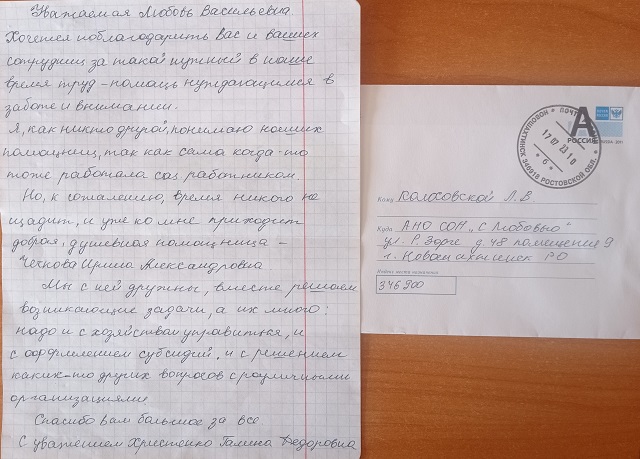 Уважаемая Любовь Васильевна.
Хочется поблагодарить Вас и ваших
сотрудниц за такой нужный в наше
время труд – помощь нуждающимся в
заботе и внимании.
Я, как никто другой, понимаю наших
помощниц, так как сама когда-то
тоже работала соц работником.
Но, к сожалению, время никого не
щадит, и уже ко мне приходит
добрая, душевная помощница –
Чеснова Ирина Александровна.
Мы с ней дружны, вместе решаем
возникающие задачи, а их много:
надо и с хозяйством управиться, и
с оформлением субсидий, и с решением
каких-то других вопросов с различными
организациями.
Спасибо Вам большое за все
С уважением Христенко Галина Федоровна
ПОЧТА
А
РОССИЯ
НОВОШАХТИНСК 346918 РОСТОВСКОЙ ОБЛ.
17 07 23 10
6
Кому Колосовской Л.В
Куда АНО СОН „С Любовью"
ул. Р. Зорге д. 48 помещение 9
г. Новошахтинск РО
346900